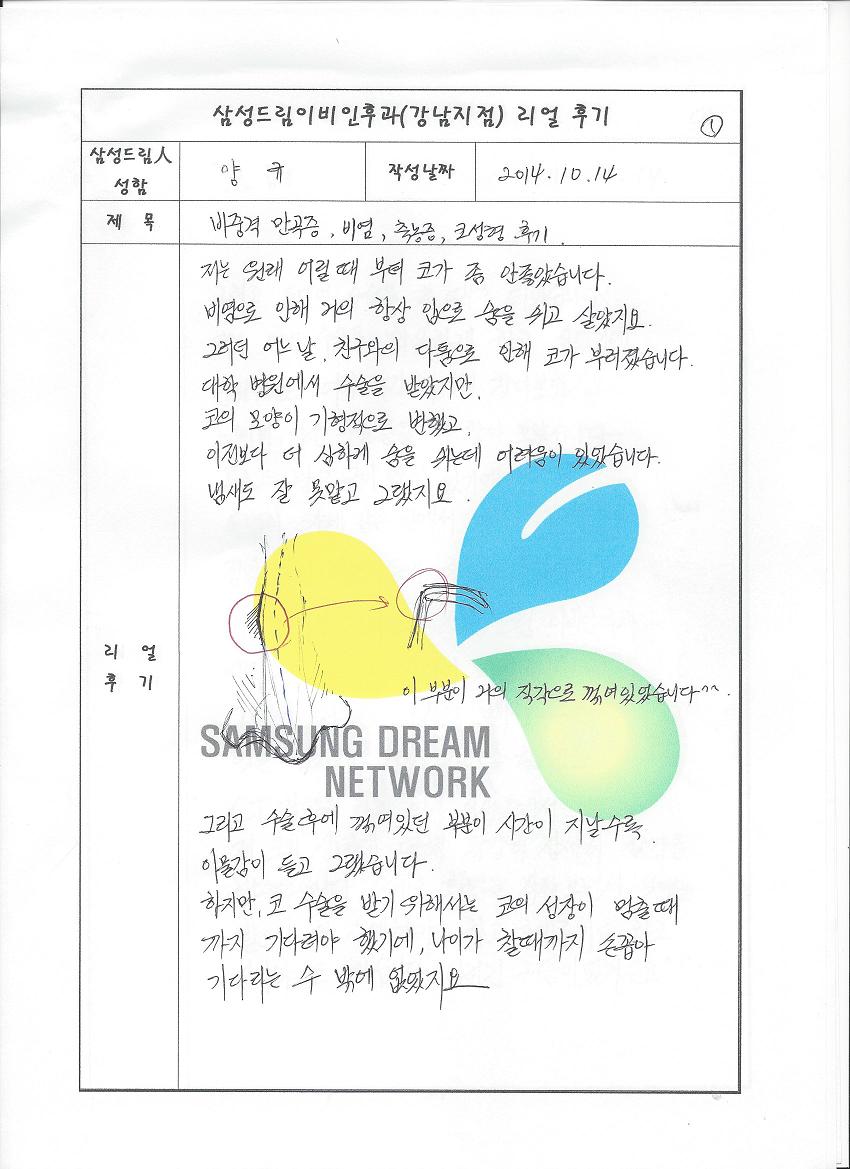 삼성드림이비인후과(강남지점) 리얼 후기
①
삼성드림人 성함
양 규
작성날짜
2014.10.14
제 목
비중격 만곡증, 비염, 축농증, 코성형 후기.
리 얼
후 기
저는 원래 어릴때 부터 코가 좀 안좋았습니다.
비염으로 인해 거의 항상 입으로 숨을 쉬고 살았지요.
그러던 어느날, 친구와의 다툼으로 인해 코가 부러졌습니다.
대학 병원에서 수술을 받았지만,
코의 모양이 기형적으로 변했고,
이전보다 더 심하게 숨을 쉬는데 어려움이 있었습니다.
냄새도 잘 못맡고 그랬지요.
이 부분이 거의 직각으로 꺾여있었습니다^^.
SAMSUNG DREAM
NETWORK
그리고 수술후에 꺾여있던 부분이 시간이 지날수록
이물감이 들고 그랬습니다.
하지만, 코 수술을 받기 위해서는 코의 성장이 멈출때
까지 기다려야 했기에, 나이가 찰때까지 손꼽아
기다리는 수 밖에 없었지요